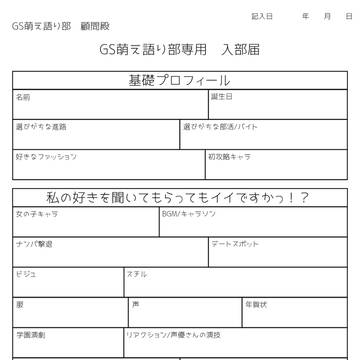 記入日　　年　月　日
GS萌え語り部　顧問殿
GS萌え語り部専用　入部届
基礎プロフィール
名前
誕生日
選びがちな進路
選びがちな部活/バイト
好きなファッション
初攻略キャラ
私の好きを聞いてもらってもイイですかっ！？
女の子キャラ
BGM/キャラソン
ナンパ撃退
デートスポット
ビジュ
スチル
服
声
年賀状
学園演劇
リアクション/声優さんの演技